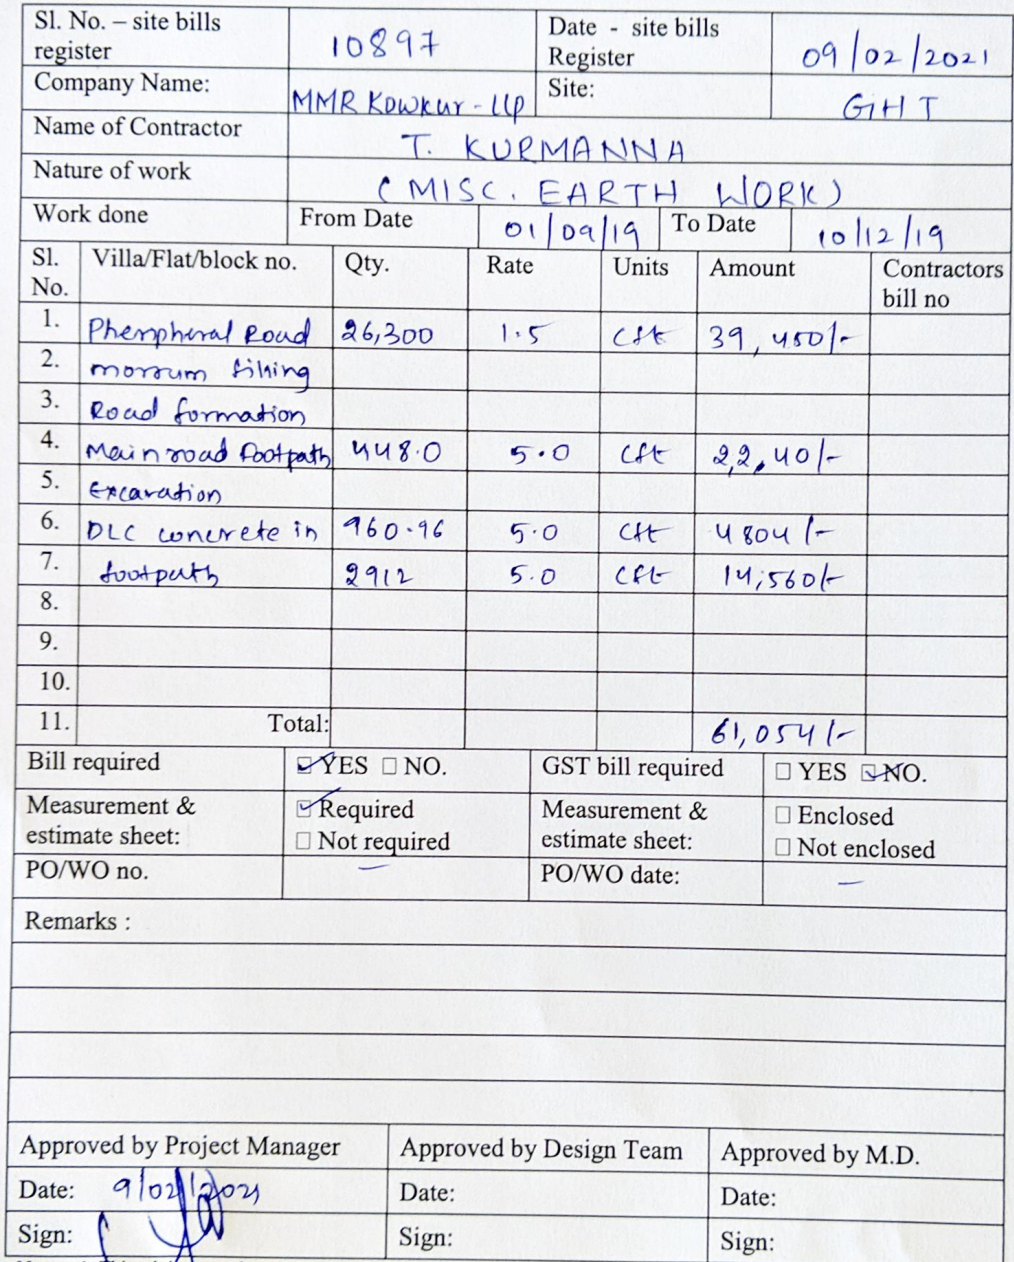 Sl. No. – site bills register 10897 Date - site bills Register 09/02/2021
Company Name: MMR Kowkur - LLP Site: GHT
Name of Contractor T. KURMANNA
Nature of work (MISC. EARTH WORK)
Work done From Date 01/09/19 To Date 10/12/19
Sl. No. Villa/Flat/block no. Qty. Rate Units Amount Contractors bill no
1. Pherpheral Road 26,300 1.5 Cft 39,450/-
2. morrum filling
3. Road formation
4. Main road Footpath 448.0 5.0 Cft 2,2,40/-
5. Excaration
6. DLC concrete in 960.96 5.0 Cft 4804/-
7. footpath 2912 5.0 Cft 14,560/-
8.
9.
10.
11. Total: 61,054/-
Bill required YES NO. GST bill required YES NO.
Measurement & estimate sheet: Required Not required Measurement & estimate sheet: Enclosed Not enclosed
PO/WO no. — PO/WO date: —
Remarks :
Approved by Project Manager Approved by Design Team Approved by M.D.
Date: 9/02/2021 Date: Date:
Sign: Sign: Sign: